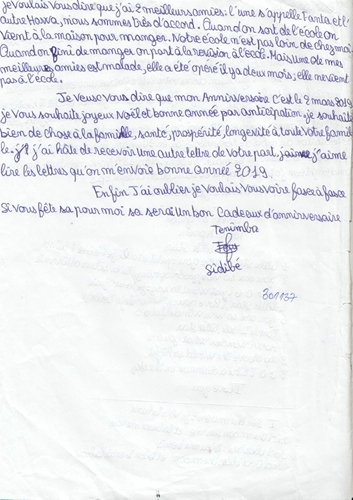 je voulais vous dire que j'ai 2 meilleurs amies. l'une s'appelle Fanta et l'
autre Hawa, nous sommes très d'accord. Quand on sort de l'école on
vient à la maison pour manger. Notre école n'est pas loin de chez moi.
Quand on fini de manger on part à la revision à l'école. Mais une de mes
meilleurs amies est malade, elle a été opéré il ya deux mois, elle ne vient
pas à l'école.
Je veuse vous dire que mon Anniversaire C'est le 2 mars 2019
je vous souhaite joyeux Noël et bonne année par anticipation, je souhaite
bien de chose à la famille, santé, prospérité, longevité à toute votre famil
le. j'ai hâte de recevoir une autre lettre de votre part, j'aime
lire les lettres qu'on m'envoie bonne année 2019.
Enfin J'ai oublier je voulais vous voire face à face
Si vous fête sa pour moi sa serai un bon Cadeaux d'anniversaire
Tenimba
Sidibé
301137